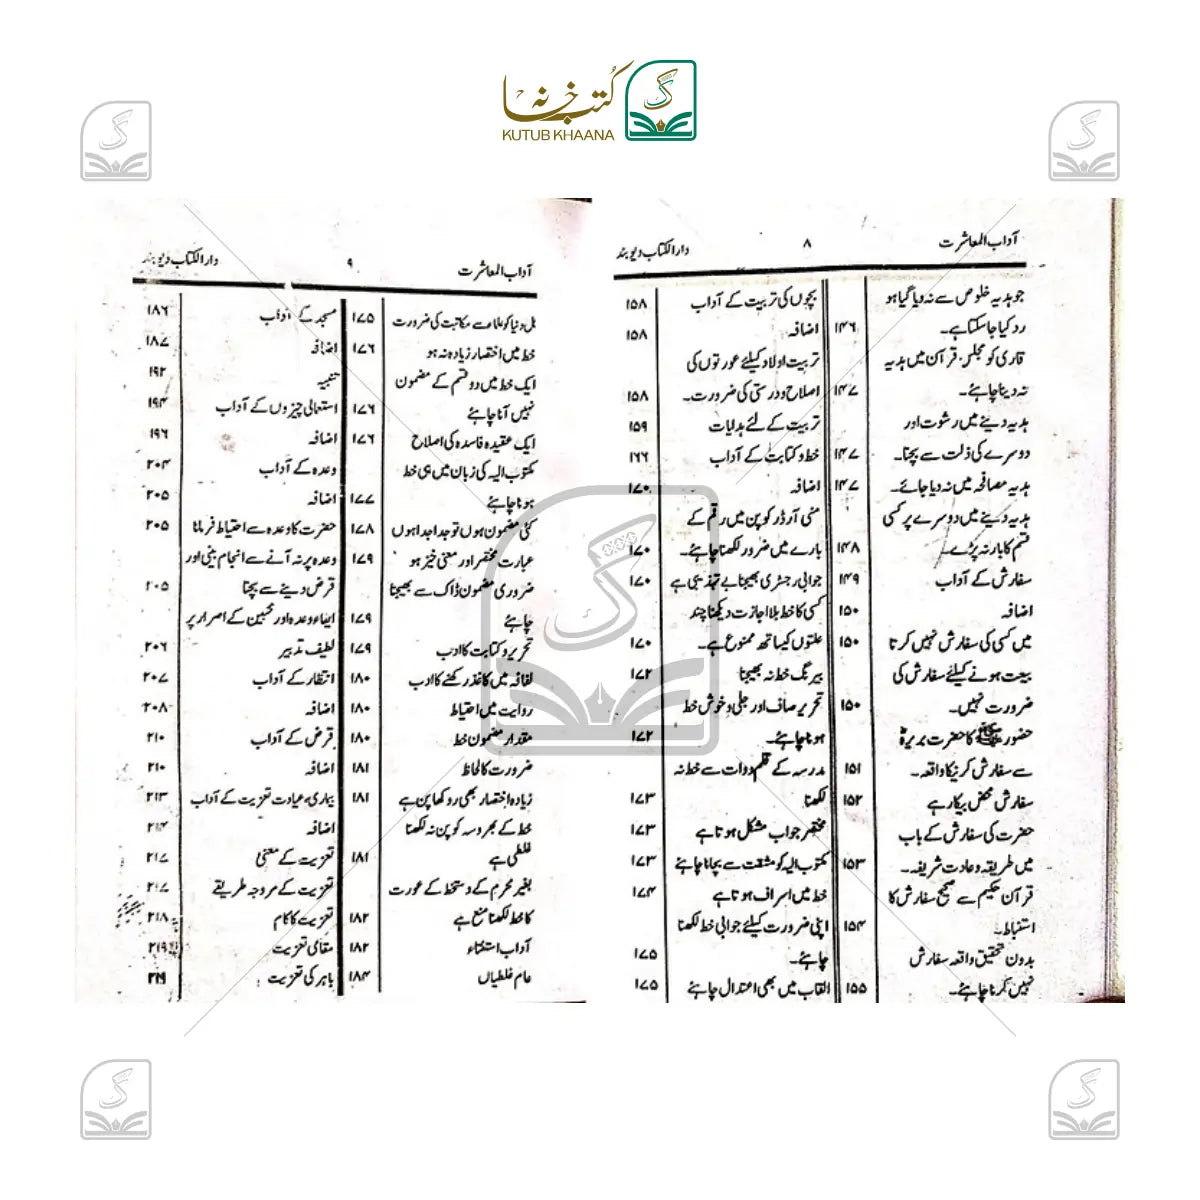 کتب خانہ
KUTUB KHAANA
آداب المعاشرت
۸
دار الکتاب دیوبند
جو ہدیہ خلوص سے نہ دیا گیا ہو
رد کیا جا سکتا ہے۔ ۱۴۶
قاری کو مجلس قرآن میں ہدیہ
نہ دینا چاہئے۔ ۱۴۷
ہدیہ دینے میں رشوت اور
دوسرے کی ذلت سے بچنا۔ ۱۴۷
ہدیہ مصافحہ میں نہ دیا جائے۔ ۱۴۷
ہدیہ دینے میں دوسرے پر کسی
قسم کا بار نہ پڑے۔ ۱۴۸
سفارش کے آداب ۱۴۹
اضافہ ۱۵۰
میں کسی کی سفارش نہیں کرتا ۱۵۰
بیعت ہونے کیلئے سفارش کی
ضرورت نہیں۔ ۱۵۰
حضور ﷺ کا حضرت بریرہؓ
سے سفارش کرنیکا واقعہ۔ ۱۵۱
سفارش محض بیکار ہے ۱۵۲
حضرت کی سفارش کے باب
میں طریقہ وعادت شریفہ۔ ۱۵۳
قرآن حکیم سے صحیح سفارش کا
استنباط۔ ۱۵۴
بدون تحقیق واقعہ سفارش
نہیں کرنا چاہئے۔ ۱۵۵
بچوں کی تربیت کے آداب ۱۵۸
اضافہ ۱۵۸
تربیت اولاد کیلئے عورتوں کی
اصلاح ودرستی کی ضرورت۔ ۱۵۸
تربیت کے لئے ہدایات ۱۵۹
خط وکتابت کے آداب ۱۶۶
اضافہ ۱۷۰
منی آرڈر کوپن میں رقم کے
بارے میں ضرور لکھنا چاہئے۔ ۱۷۰
جوابی رجسٹری بھیجنا بے تہذیبی ہے ۱۷۰
کسی کا خط بلا اجازت دیکھنا چند
علتوں کیساتھ ممنوع ہے۔ ۱۷۰
بیرنگ خط نہ بھیجنا ۱۷۲
تحریر صاف اور جلی وخوش خط
ہونا چاہئے۔ ۱۷۲
مدرسہ کے قلم دوات سے خط نہ
لکھنا ۱۷۳
مختصر جواب مشکل ہوتا ہے ۱۷۳
مکتوب الیہ کو مشقت سے بچانا چاہئے ۱۷۳
خط میں اسراف ہوتا ہے ۱۷۴
اپنی ضرورت کیلئے جوابی خط لکھنا
چاہئے۔ ۱۷۵
القاب میں بھی اعتدال چاہئے ۱۷۵
آداب المعاشرت
۹
دار الکتاب دیوبند
اہل دنیا کو علماء سے مکاتبت کی ضرورت ۱۷۵
خط میں اختصار زیادہ نہ ہو ۱۷۶
ایک خط میں دو قسم کے مضمون
نہیں آنا چاہئے ۱۷۶
ایک عقیدہ فاسدہ کی اصلاح ۱۷۶
مکتوب الیہ کی زبان میں ہی خط
ہونا چاہئے ۱۷۷
کئی مضمون ہوں تو جدا جدا ہوں ۱۷۸
عبارت مختصر اور معنی خیز ہو ۱۷۹
ضروری مضمون ڈاک سے بھیجنا
چاہئے ۱۷۹
تحریر وکتابت کا ادب ۱۷۹
لفافہ میں کاغذ رکھنے کا ادب ۱۸۰
روایت میں احتیاط ۱۸۰
مقدار مضمون خط ۱۸۰
ضرورت کا لحاظ ۱۸۱
زیادہ اختصار بھی روکھا پن ہے ۱۸۱
خط کے بھروسہ کوپن نہ لکھنا
غلطی ہے ۱۸۱
بغیر محرم کے دستخط کے عورت
کا خط لکھنا منع ہے ۱۸۲
آداب استفتاء ۱۸۲
عام غلطیاں ۱۸۴
مسجد کے آداب ۱۸۶
اضافہ ۱۸۷
تنبیہ ۱۹۲
استعمالی چیزوں کے آداب ۱۹۴
اضافہ ۱۹۶
وعدہ کے آداب ۲۰۴
اضافہ ۲۰۵
حضرت کا وعدہ سے احتیاط فرمانا ۲۰۵
وعدہ پر نہ آنے سے انجام بینی اور
قرض دینے سے بچنا ۲۰۵
ایفاء وعدہ اور محبین کے اصرار پر
لطیف تدبیر ۲۰۶
انتظار کے آداب ۲۰۷
اضافہ ۲۰۸
قرض کے آداب ۲۱۰
اضافہ ۲۱۰
بیماری، عیادت تعزیت کے آداب ۲۱۳
اضافہ ۲۱۴
تعزیت کے معنیٰ ۲۱۷
تعزیت کے مروجہ طریقے ۲۱۷
تعزیت کا کام ۲۱۸
مقامی تعزیت ۲۱۹
باہر کی تعزیت ۲۱۹